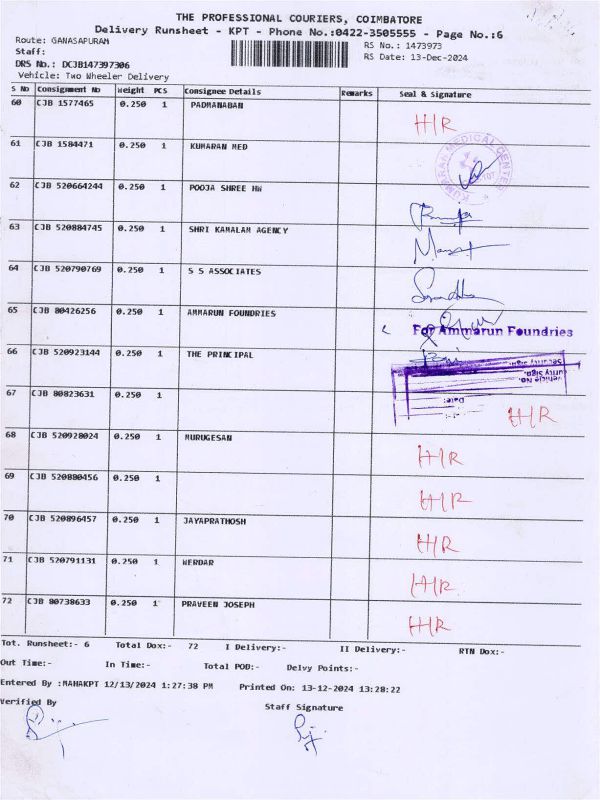 THE PROFESSIONAL COURIERS, COIMBATORE
Delivery Runsheet - KPT - Phone No.:0422-3505555 - Page No.:6
Route: GANASAPURAM RS No.: 1473973
Staff: RS Date: 13-Dec-2024
DRS No.: DCJB147397306
Vehicle: Two Wheeler Delivery
S No Consignment No Weight PCS Consignee Details Remarks Seal & Signature
60 CJB 1577465 0.250 1 PADMANABAN H/R
61 CJB 1584471 0.250 1 KUMARAN MED KUMARAN MEDICAL CENTER
62 CJB 520664244 0.250 1 POOJA SHREE HW
63 CJB 520884745 0.250 1 SHRI KAMALAM AGENCY
64 CJB 520790769 0.250 1 S S ASSOCIATES
65 CJB 80426256 0.250 1 AMMARUN FOUNDRIES For Ammarun Foundries
66 CJB 520923144 0.250 1 THE PRINCIPAL
Security Sign.
Vehicle No.
Date:
67 CJB 80823631 0.250 1 H/R
68 CJB 520928024 0.250 1 MURUGESAN H/R
69 CJB 520880456 0.250 1 H/R
70 CJB 520896457 0.250 1 JAYAPRATHOSH H/R
71 CJB 520791131 0.250 1 WERDAR H/R
72 CJB 80738633 0.250 1 PRAVEEN JOSEPH H/R
Tot. Runsheet:- 6 Total Dox:- 72 I Delivery:- II Delivery:- RTN Dox:-
Out Time:- In Time:- Total POD:- Delvy Points:-
Entered By :MAHAKPT 12/13/2024 1:27:38 PM Printed On: 13-12-2024 13:28:22
Verified By Staff Signature